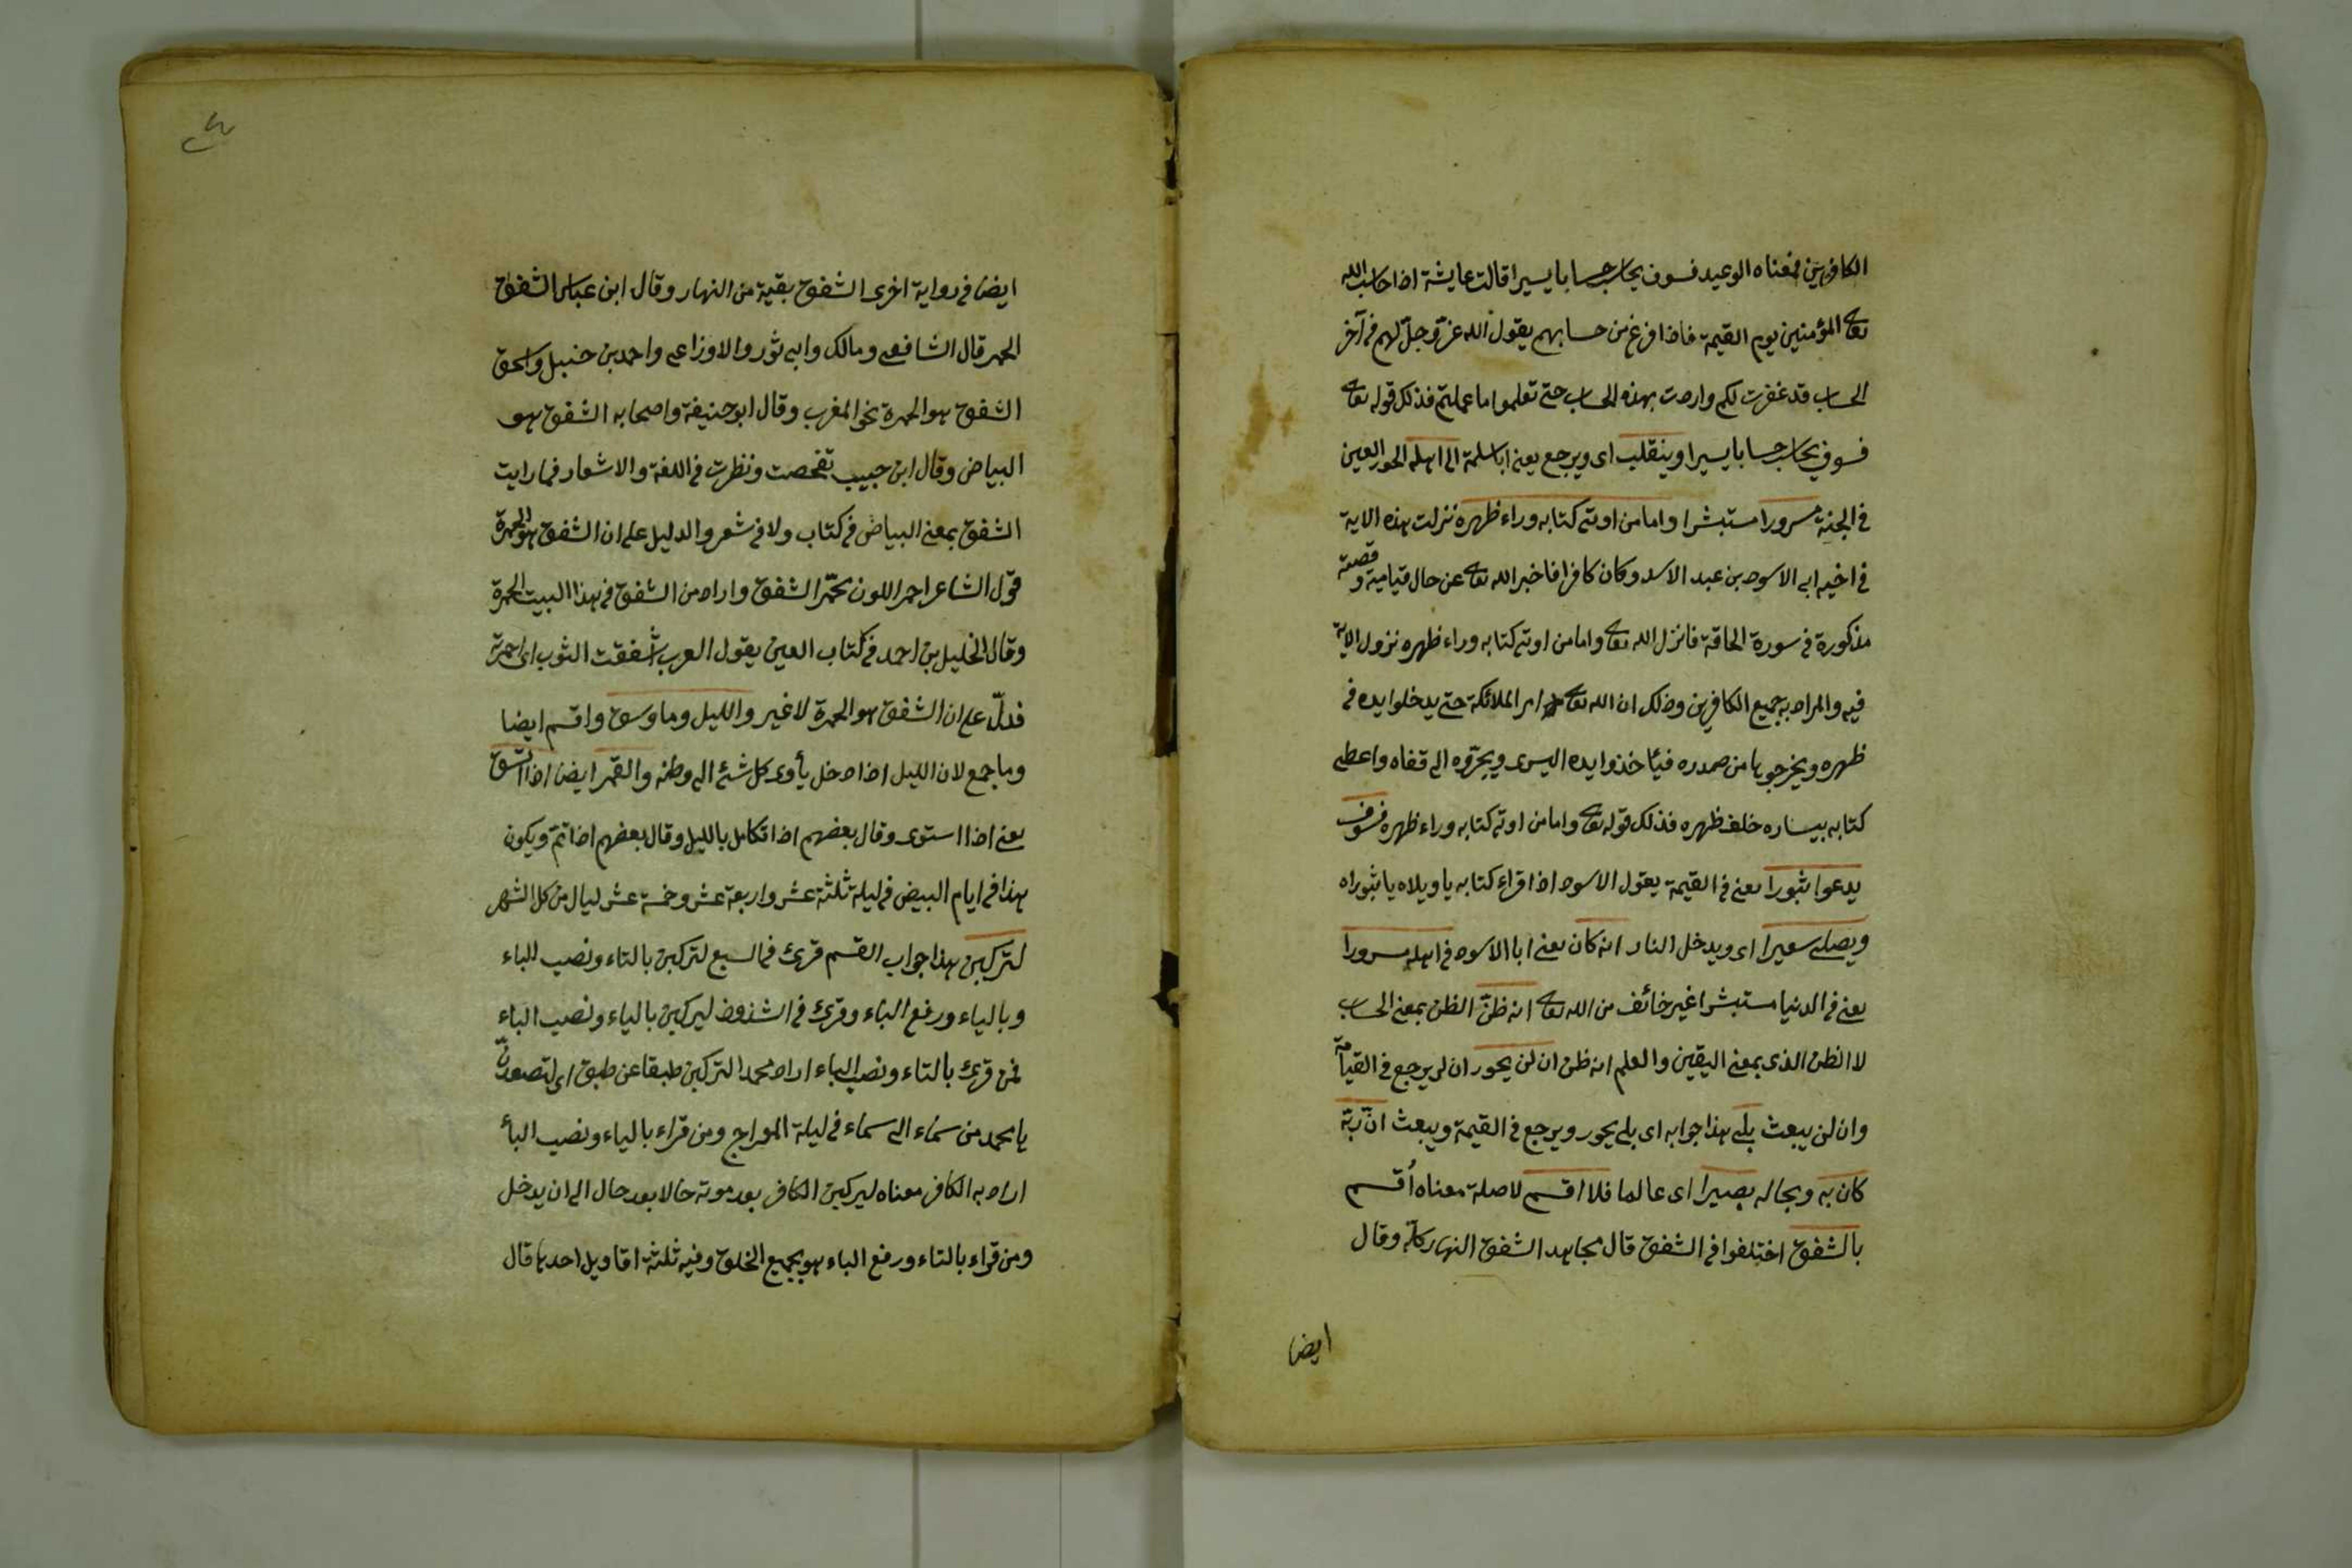 الكافرين فمعناه الوعيد فسوف يحاسب حسابا يسيرا قالت عايشة اذا حاسب الله
تعالى المؤمنين يوم القيمة فاذا فرغ من حسابهم يقول الله عز وجل لهم في آخر
الحساب قد غفرت لكم واردت بهذه الحساب حتى تعلموا ما عملتم فذلك قوله تعالى
فسوف يحاسب حسابا يسيرا وينقلب اى ويرجع يعنى اباسلمة الى اهله الحور العين
في الجنة مسرورا مستبشرا واما من اوتى كتابه وراء ظهره نزلت هذه الاية
في اخيه ابى الاسود بن عبد الاسد وكان كافرا فاخبر الله تعالى عن حال قيامية وقصته
مذكورة في سورة الحاقة فانزل الله تعالى واما من اوتى كتابه وراء ظهره نزول الاية
فيه والمراد به جميع الكافرين وذلك ان الله تعالى امر الملائكة حتى يدخلوا يده في
ظهره ويخرجوها من صدره فيأخذوا يده اليسرى ويجروه الى قفاه واعطى
كتابه بيساره خلف ظهره فذلك قوله تعالى واما من اوتى كتابه وراء ظهره فسوف
يدعوا ثبورا يعنى في القيمة يقول الاسود اذا قراء كتابه يا ويلاه يا ثبوراه
ويصلى سعيرا اى ويدخل النار انه كان يعنى ابا الاسود في اهله مسرورا
يعنى في الدنيا مستبشرا غير خائف من الله تعالى انه ظنّ الظن بمعنى الحساب
لا الظن الذى بمعنى اليقين والعلم انه ظن ان لن يحور ان لن يرجع في القيامة
وان لن يبعث بلى هذا جوابه اى بلى يحور ويرجع في القيمة ويبعث انّ ربّه
كان به وبحاله بصيرا اى عالما فلا اقسم لا صلة معناه أقسم
بالشفق اختلفوا في الشفق قال مجاهد الشفق النهار كلّه وقال
ايضا
ايضا في رواية اخرى الشفق بقية من النهار وقال ابن عباس الشفق
الحمر قال الشافعى ومالك وابى ثور والاوزاعى واحمد بن حنبل واسحق
الشفق هو الحمرة نحو المغرب وقال ابو حنيفة واصحابه الشفق هو
البياض وقال ابن حبيب تفحصت ونظرت في اللغة والاشعار فما رايت
الشفق بمعنى البياض في كتاب ولا في شعر والدليل على ان الشفق هو الحمرة
قول الشاعر احمر اللون محمّر الشفق واراد من الشفق في هذا البيت الحمرة
وقال الخليل بن احمد في كتاب العين يقول العرب شفقت الثوب اى احمرته
فدلّ على ان الشفق هو الحمرة لا غير والليل وما وسق واقسم ايضا
وما جمع لان الليل اذا دخل يأوى كل شئ الى وطنه والقمر ايضا اذا اتسق
يعنى اذا استوى وقال بعضهم اذا تكامل بالليل وقال بعضهم اذا تمّ ويكون
هذا في ايام البيض في ليلة ثلثة عشر واربعة عشر وخمسة عشر ليال من كل الشهر
لتركبن هذا جواب القسم قرئ في السبع لتركبن بالتاء ونصب الباء
وبالياء ورفع الباء وقرئ في الشذوذ ليركبن بالياء ونصب الباء
فمن قرئ بالتاء ونصب الباء اراد محمدا لتركبن طبقا عن طبق اى لتصعدنّ
يا محمد من سماء الى سماء في ليلة المعراج ومن قراء بالياء ونصب البأ
اراد به الكافر معناه ليركبن الكافر بعد موته حالا بعد حال الى ان يدخل
ومن قراء بالتاء ورفع الباء هو بجميع الخلق وفيه ثلثة اقاويل احدها قال